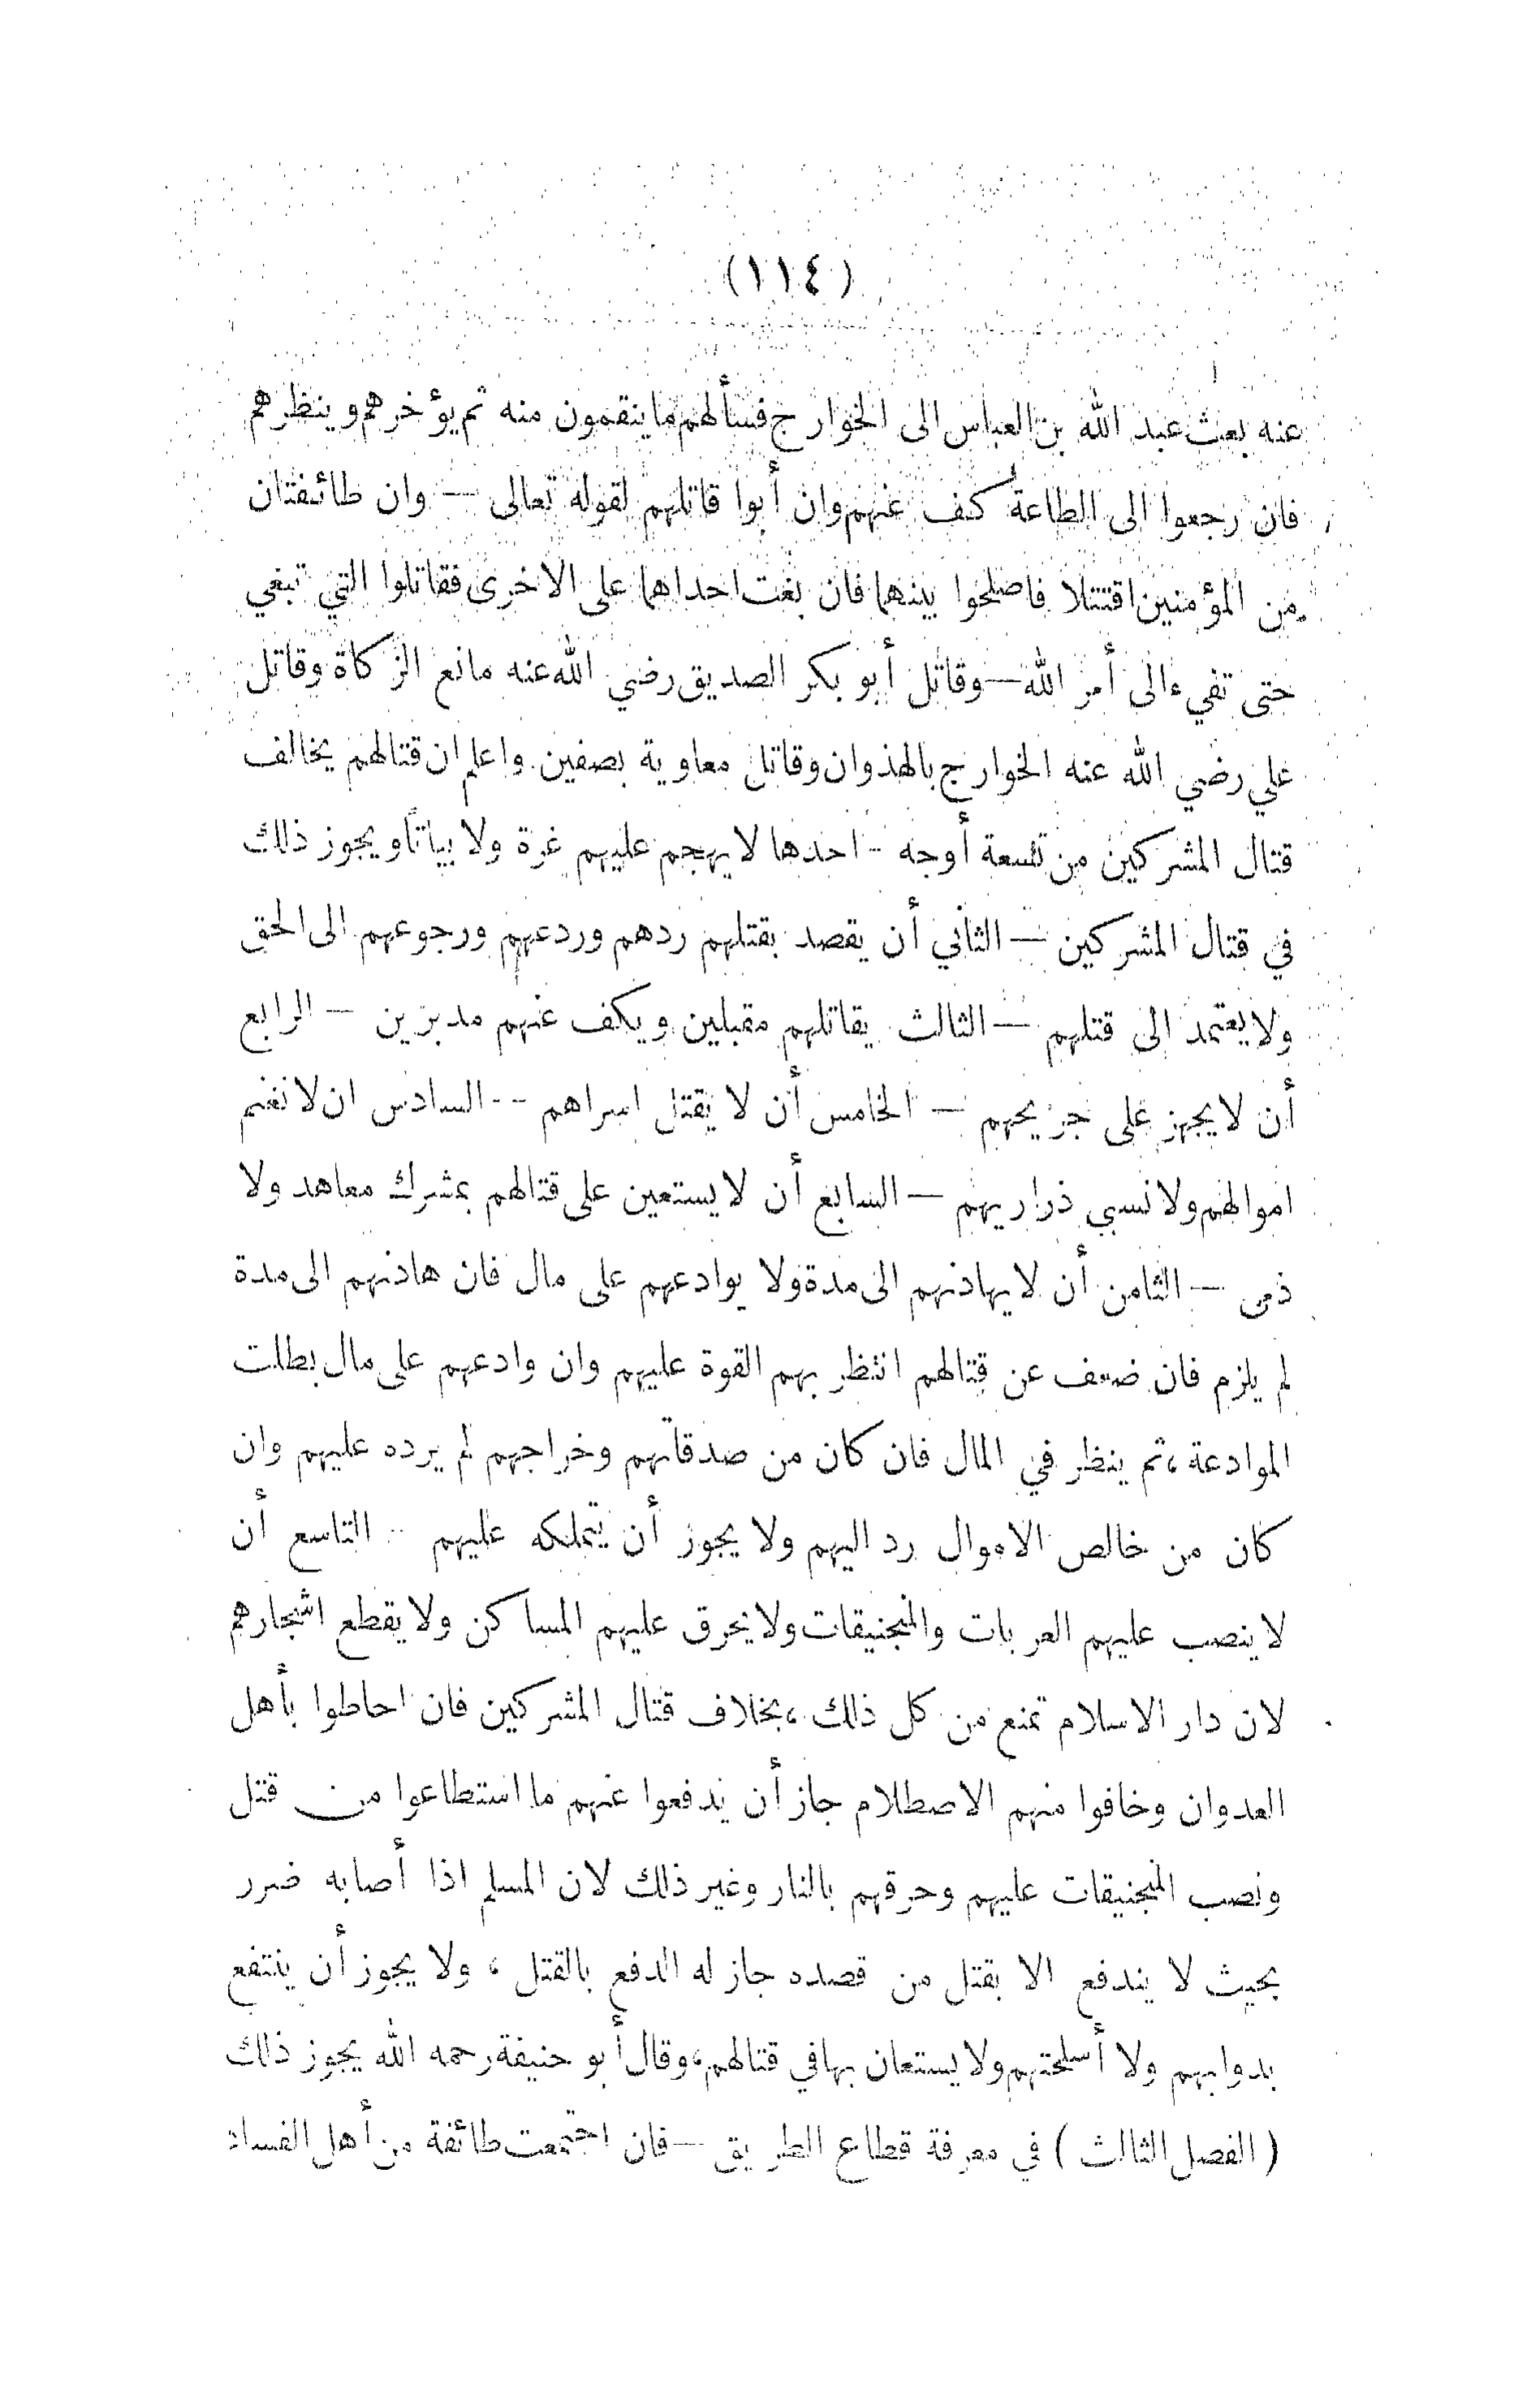 (١١٤)
عنه بعث عبد الله بن العباس الى الخوارج فسألهم ما ينقمون منه ثم يؤخرهم وينظرهم
فان رجعوا الى الطاعة كف عنهم وان أبوا قاتلهم لقوله تعالى — وان طائفتان
من المؤمنين اقتتلا فاصلحوا بينهما فان بغت احداهما على الاخرى فقاتلوا التي تبغي
حتى تفيء الى أمر الله — وقاتل أبو بكر الصديق رضي الله عنه مانع الزكاة وقاتل
علي رضي الله عنه الخوارج بالهذوان وقاتل معاوية بصفين واعلم ان قتالهم يخالف
قتال المشركين من تسعة أوجه - احدها لا يهجم عليهم غرة ولا بياتا ويجوز ذلك
في قتال المشركين — الثاني أن يقصد بقتلهم ردهم وردعهم ورجوعهم الى الحق
ولا يعتمد الى قتلهم — الثالث يقاتلهم مقبلين ويكف عنهم مدبرين — الرابع
أن لا يجهز على جريحهم — الخامس أن لا يقتل اسراهم -- السادس ان لا نغنم
اموالهم ولا نسبي ذراريهم — السابع أن لا يستعين على قتالهم بمشرك معاهد ولا
ذمى — الثامن أن لا يهادنهم الى مدة ولا يوادعهم على مال فان هادنهم الى مدة
لم يلزم فان ضعف عن قتالهم انتظر بهم القوة عليهم وان وادعهم على مال بطلت
الموادعة، ثم ينظر في المال فان كان من صدقاتهم وخراجهم لم يرده عليهم وان
كان من خالص الاموال رد اليهم ولا يجوز أن يتملكه عليهم -- التاسع أن
لا ينصب عليهم العربات والمنجنيقات ولا يحرق عليهم المساكن ولا يقطع اشجارهم
لان دار الاسلام تمنع من كل ذلك، بخلاف قتال المشركين فان احاطوا بأهل
العدوان وخافوا منهم الاصطلام جاز أن يدفعوا عنهم ما استطاعوا من قتل
ونصب المنجنيقات عليهم وحرقهم بالنار وغير ذلك لان المسلم اذا أصابه ضرر
بحيث لا يندفع الا بقتل من قصده جاز له الدفع بالقتل، ولا يجوز أن ينتفع
بدوابهم ولا أسلحتهم ولا يستعان بها في قتالهم، وقال أبو حنيفة رحمه الله يجوز ذلك
( الفصل الثالث ) في معرفة قطاع الطريق — فان اجتمعت طائفة من أهل الفساد